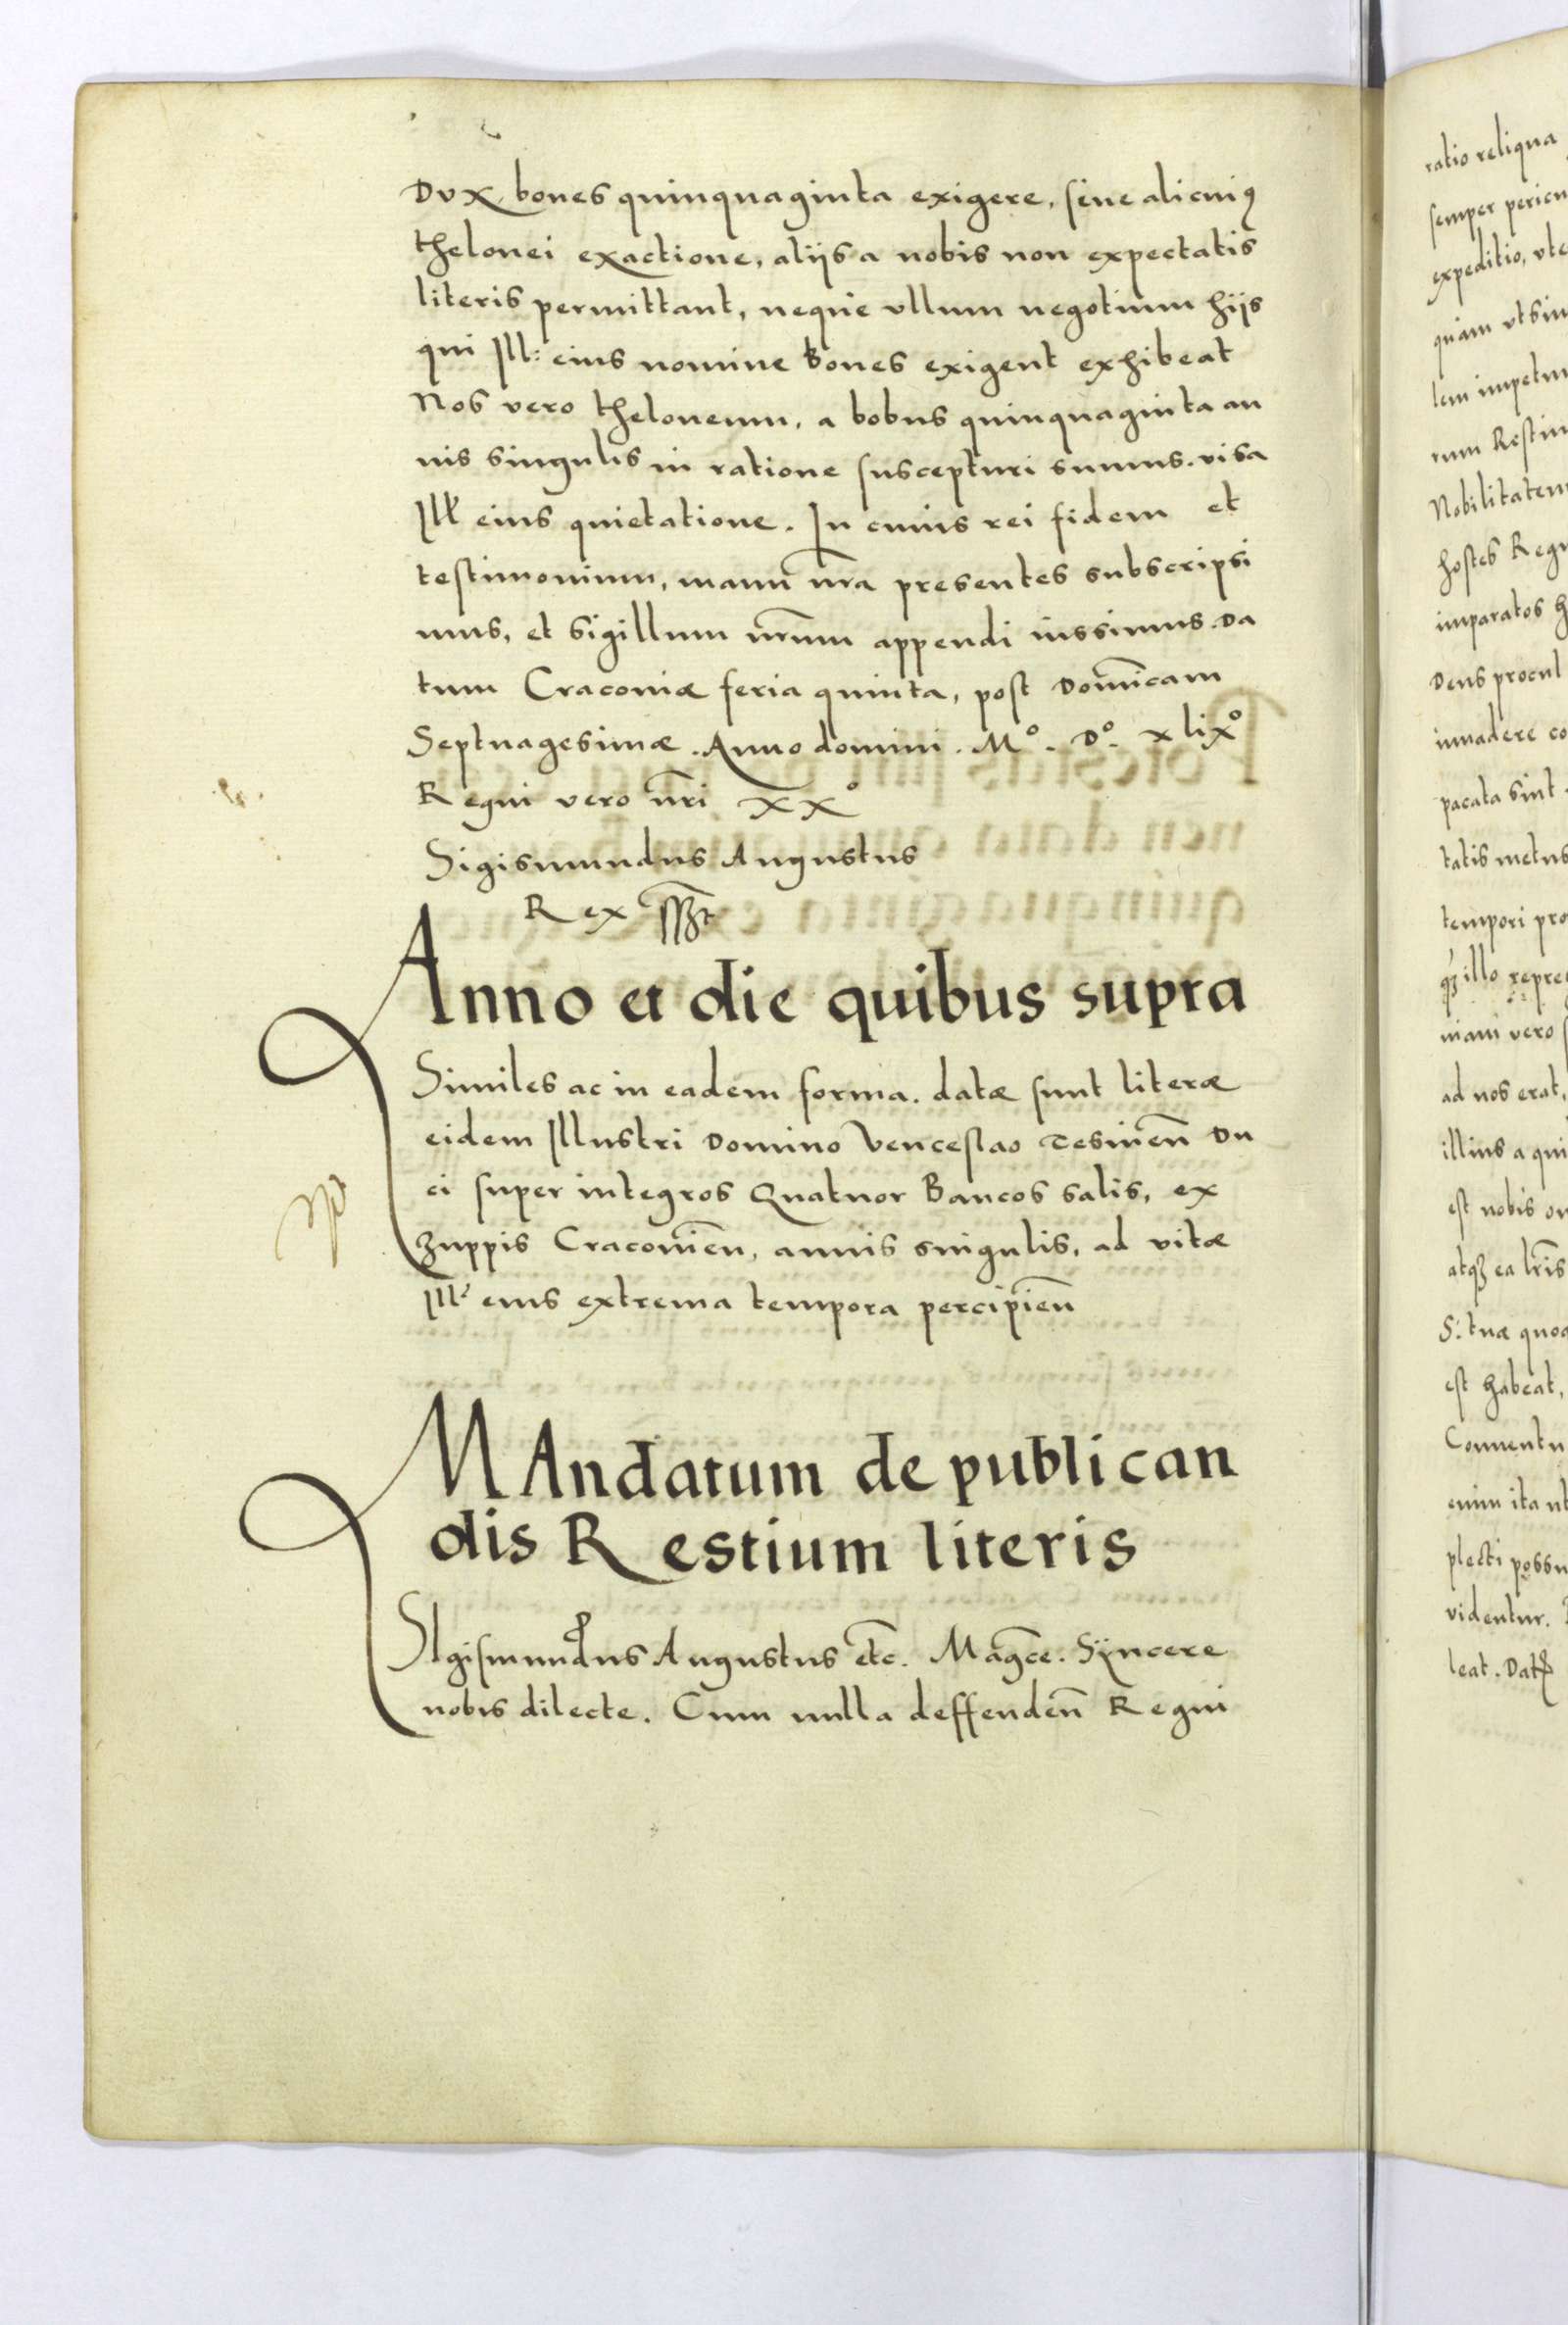 Dux boues quinquaginta exigere, siue alicui9
thelonei exactione, aliis a nobis non expectatis
literis permittant, neque vllum negotium hijs
qui Ill: eius nomine Boues exigent exhibeat
Nos vero theloneum, a bobus quinquaginta an
nis singulis in ratione suscepturi sumus. visa
Ill: eius quietatione. In cuius rei fidem et
testimonium, manu nr̃a presentes subscripsi
mus, et sigillum nr̃um appendi iussimus. Da
tum Cracouiæ feria quinta, post Domĩcam
Septuagesimæ. Anno domini. Mº. Dº. xlixº
Regni vero nr̃i XXº
Sigismundus Augustus
Rex sszt
Anno et die quibus supra
Similes ac in eadem forma. datæ sunt literæ
eidem Illustri Domino Venceslao Tesineñ Du
ci super integros Quatuor Bancos salis, ex
Zuppis Cracouieñ, annis singulis, ad vitæ
Ill: eius extrema tempora percipieñ
MAndatum de publican
dis Restium literis
SIgismundus Augustus etc̃. Mag̃ce. Syncere
nobis dilecte. Cum nulla deffendeñ Regni
ratio reliqua
semper pericu
expeditio, vte
quam vt sin
lem impetu
rum Restiu
Nobilitatem
hostes Regn
imparatos h
Deus procul
inuadere co
pacata sint
tatis metus
tempori pro
qz illo repre
niam vero s
ad nos erat,
illius a qui
est nobis on
atqz ea lr̃is
S: tuæ quoa
est habeat,
Conuentu
enim ita ut
plecti possu
videntur.
leat. Dat